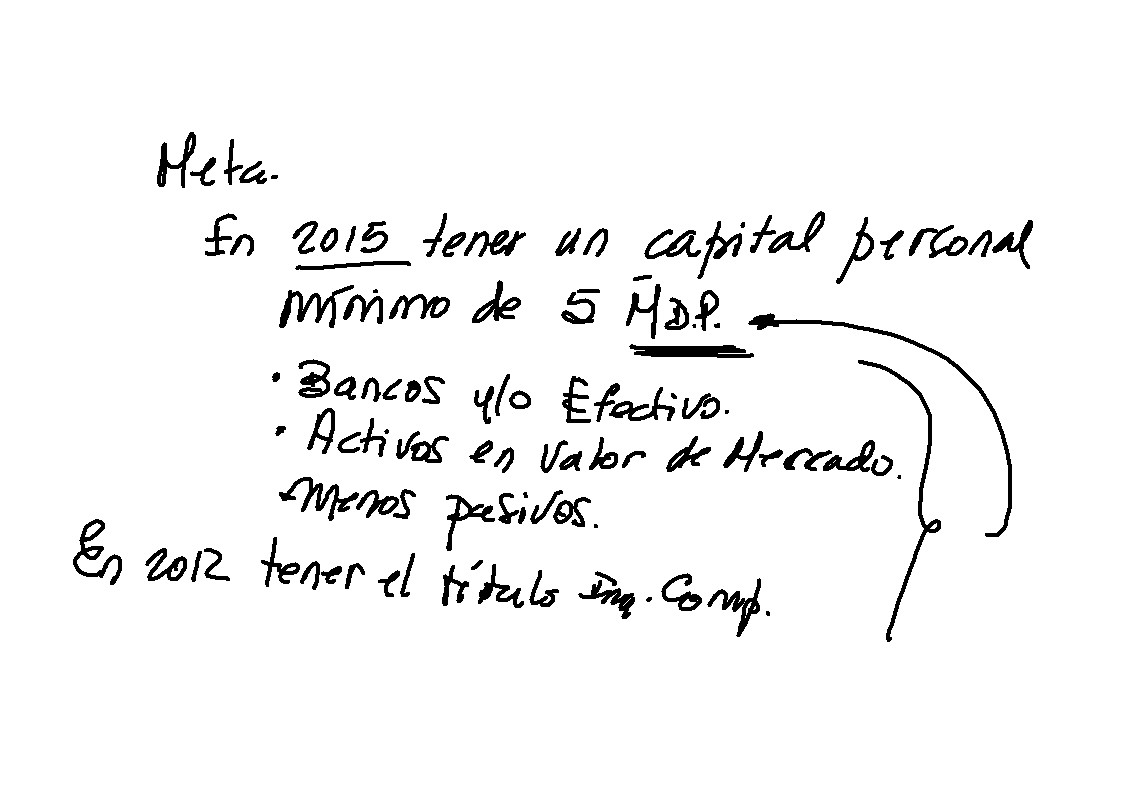 Meta.
En 2015 tener un capital personal
mínimo de 5 MD.P.
· Bancos y/o Efectivo.
· Activos en valor de Mercado.
- Menos pasivos.
En 2012 tener el título Ing. Comp.